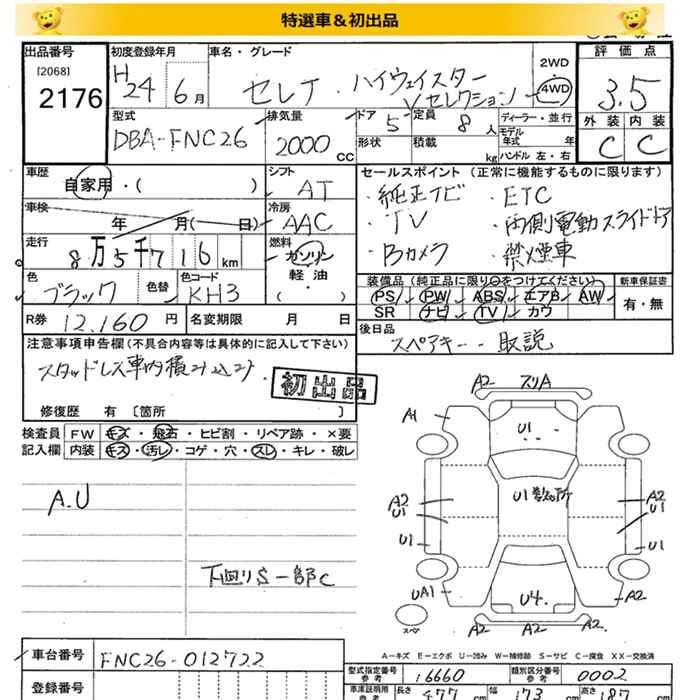 特選車＆初出品
出品番号
[2068]
2176
初度登録年月
H24 6月
車名・グレード
セレナ ハイウェイスター
Vセレクション
2WD
4WD
評価点
3.5
外装 内装
C C
型式
DBA-FNC26
排気量
2000 CC
ドア 5 定員 8人
形状 積載 kg
ディーラー・並行
モデル年式 年
ハンドル 左・右
車歴
自家用・( )
シフト
AT
車検
年 月(ー 日)
冷房
AAC
走行
8万5千716km
燃料
ガソリン
軽油
( )
色
ブラック
色替
色コード
KH3
R券 12,160円
名変期限 月 日
セールスポイント (正常に機能するものに限ります)
・純正ナビ ・ETC
・TV ・両側電動スライドドア
・Bカメラ ・禁煙車
装備品(純正品に限り○をつけてください)
新車保証書
PS PW ABS エアB AW
SR ナビ TV カワ
有・無
後日品
スペアキー 取説
注意事項申告欄(不具合内容等は具体的に記入して下さい)
スタッドレス車内積み込み
初出品
修復歴 有〔箇所 〕
検査員 FW キズ・飛石・ヒビ割・リペア跡・×要
記入欄 内装 キズ・汚レ・コゲ・穴・スレ・キレ・破レ
A.U
下回りS一部C
A2 スリA
A1
U1
A2
U1
U1 数カ所
A2
U1
U1
U1
UA1
U4
A2
スペア
A2 A2 A2
A－キズ E－エクボ U－凹み W－補修跡 S－サビ C－腐食 XX－交換済
車台番号 FNC26-012722
登録番号
型式指定番号 参考 16660
類別区分番号 参考 0002
車庫証明用 参考
長さ 477 cm
幅 173 cm
高さ 187 cm